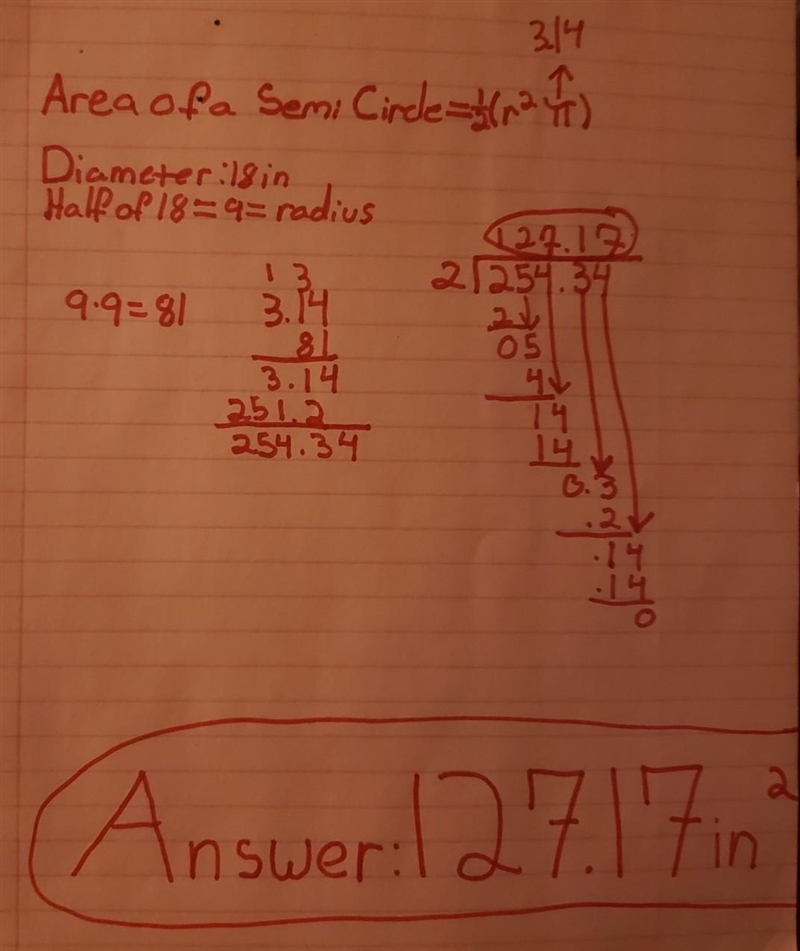 3.14
↑
Area of a Semi Circle=½(r² π)
Diameter:18in
Half of 18=9=radius
9·9=81
1 3
3.14
81
3.14
251.2
254.34
127.17
2 254.34
2
05
4
14
14
0.3
.2
.14
.14
0
Answer:127.17in²